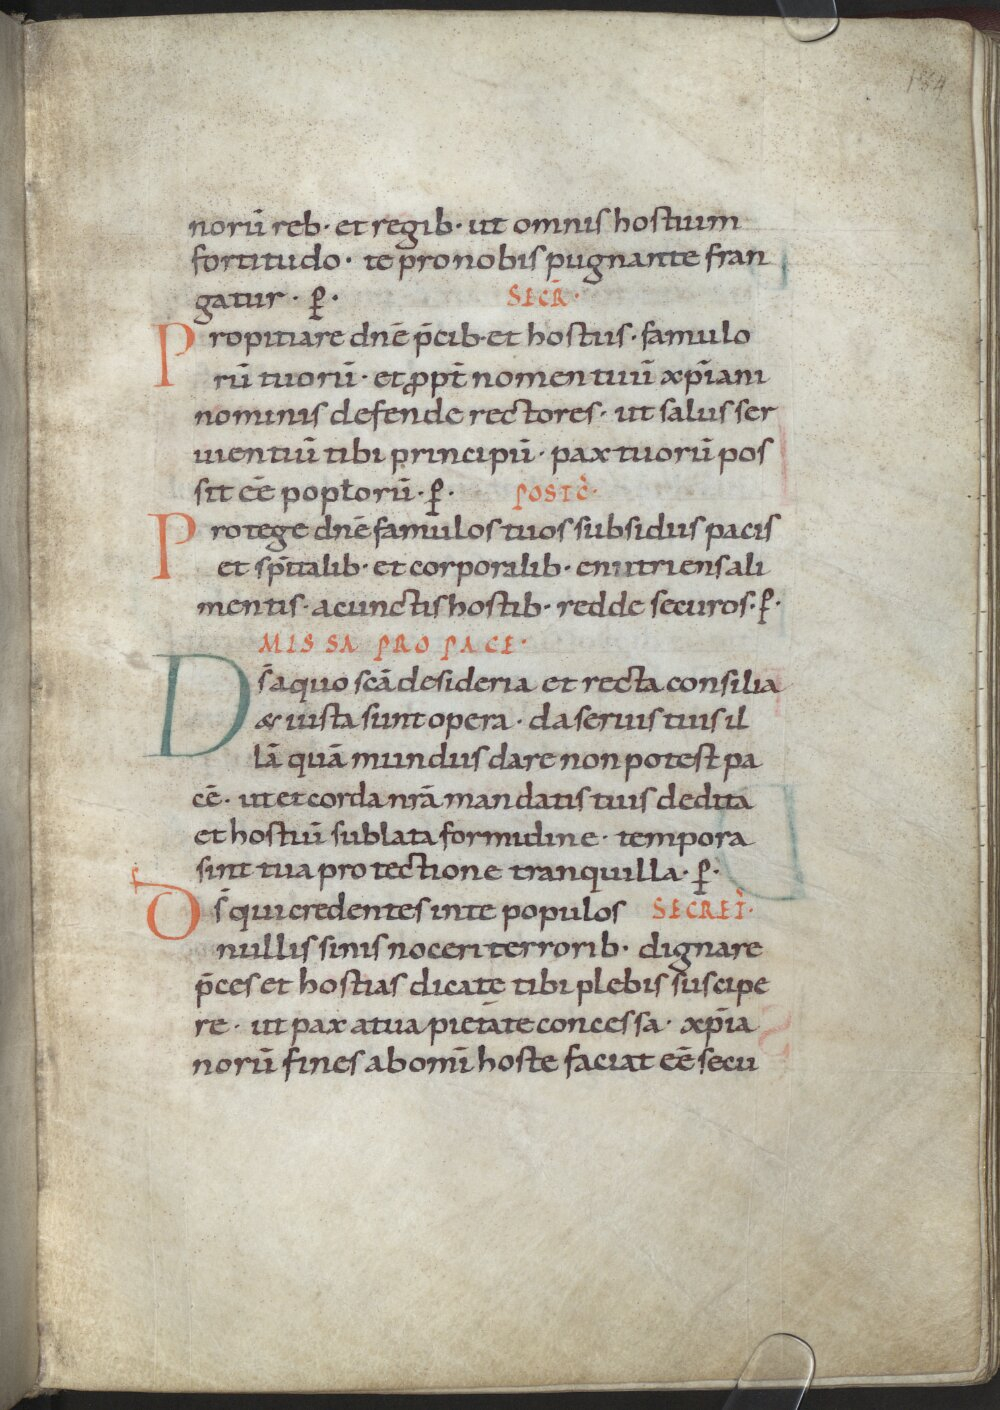 154
norū reb· et regib· ut omnis hostium
fortitudo· te pro nobis pugnante fran
gatur· p̲·  SECR̄·
Propitiare dn̄e p̄cib· et hostiis· famulo
rū tuorū· et ꝓpt̄ nomen tuū xp̄iani
nominis defende rectores· ut salus ser
uientiū tibi principū· pax tuorū pos
sit eē̄ poplorū· p̲·  POSTC̄·
Protege dn̄e famulos tuos subsidiis pacis
et sp̄italib· et corporalib· enutriens ali
mentis· a cunctis hostib· redde securos· p̲·
MISSA PRO PACE·
Ds̄ a quo scā desideria et recta consilia
& iusta sunt opera· da seruis tuis il
lā quā mundus dare non potest pa
cē· ut et corda nr̄a mandatis tuis dedita
et hostiū sublata formidine· tempora
sint tua protectione tranquilla· p̲·
Ds̄ qui credentes in te populos  SECRET̄·
nullis sinis noceri terrorib· dignare
p̄ces et hostias dicate tibi plebis suscipe
re· ut pax a tua pietate concessa· xp̄ia
norū fines ab omī hoste faciat eē̄ secu